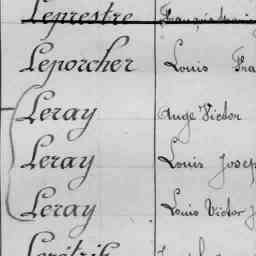 Leprestre
Leporcher Louis
Leray Ange Victor
Leray Louis
Leray Louis Victor